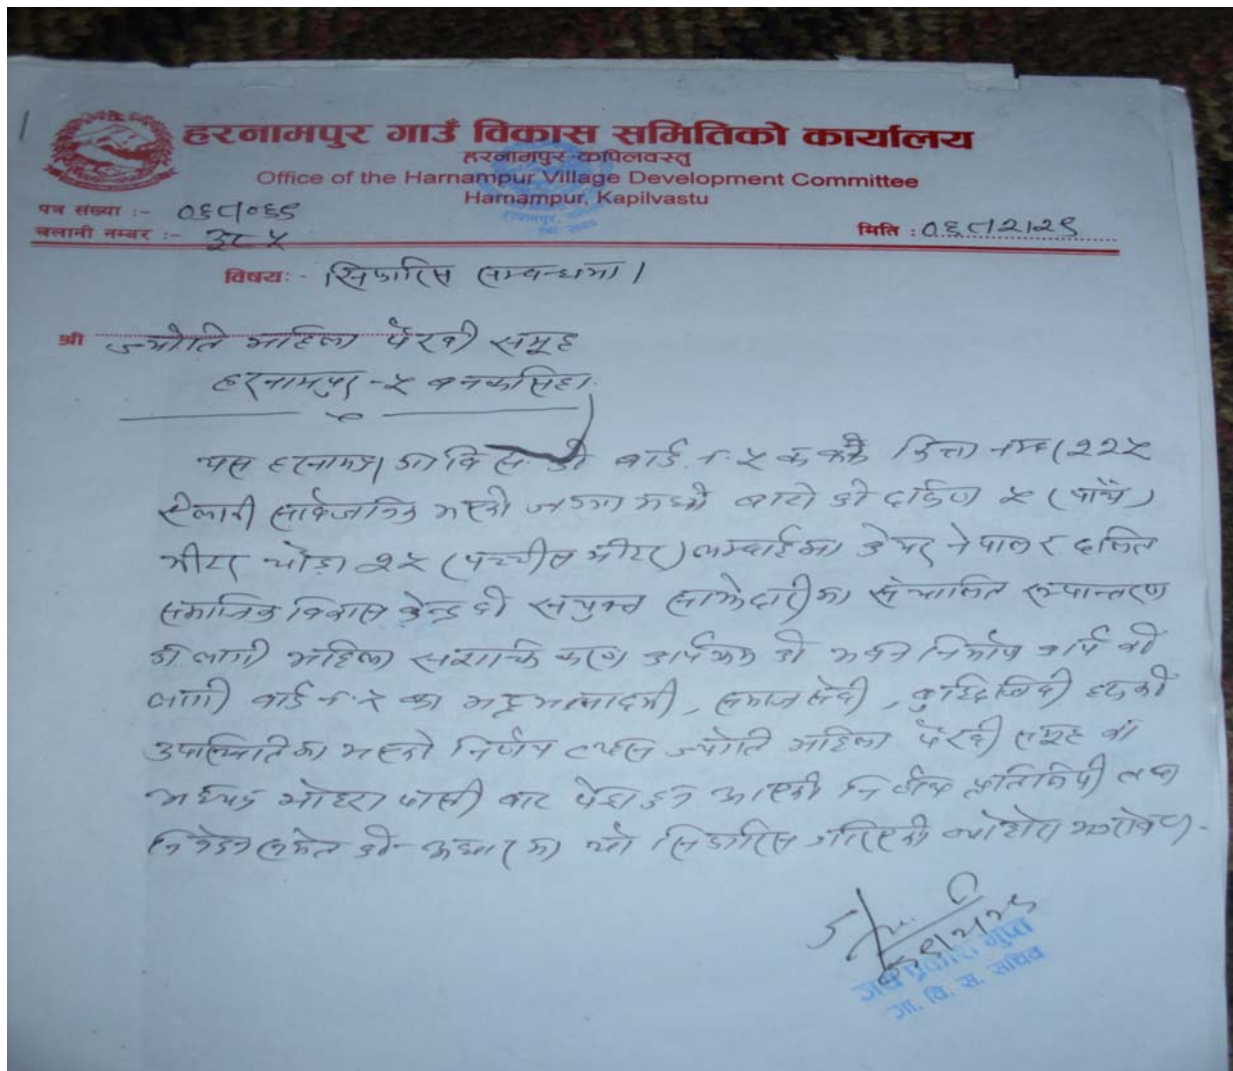 हरनामपुर गाउँ विकास समितिको कार्यालय
हरनामपुर कपिलवस्तु
Office of the Harnampur Village Development Committee
Harnampur, Kapilvastu
पत्र संख्या :- ०६८।०६९
चलानी नम्बर :- ३८५
मिति : ०६८।२।२९
विषय: - सिफारिस सम्बन्धमा।
श्री ज्योति महिला पैरवी समूह
हरनामपुर -५ बनकसिहा
यस हरनामपुर गा वि स को वार्ड नं ५ कित्ता नम्बर २२५
ऐलानी सार्वजनिक भएको जग्गा मध्ये बाटो को दाहिण ५ (पाँच)
मीटर चौडा २५ (पच्चीस मीटर) लम्बाईमा केयर नेपाल र दलित
समाजिक विकास केन्द्र को संयुक्त साझेदारीमा संचालित रुपान्तरण
को लागी महिला सशक्ति करण कार्यक्रम को भवन निर्माण कार्य को
लागी वार्ड नं ५ का भद्रभलादमी, समाज सेवी, बुद्धिजिवी हरुको
उपस्थितिमा भएको निर्णय ज्योति महिला पैरवी समूह का
अध्यक्ष पासी बाट पेश हुन आएको निर्णय प्रतिलिपी तथा
निवेदन समेत को आधारमा यो सिफारिस गरिएको व्यहोरा अनुरोध छ।
जय प्रकाश गुप्त
गा. वि. स. सचिव